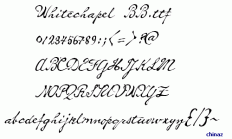 Whitechapel BB.ttf
0123456789:;<=>?@
ABCDEFGHIJKLM
NOPQRSTUVWXYZ
abcdefghijklmnopqrstuvwxyz{|}~
chinaz